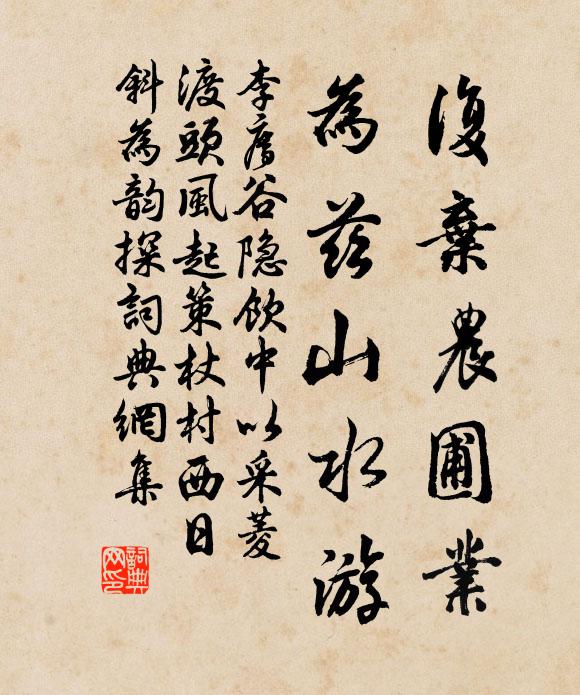 復棄農圃業
為茲山水游
李唐谷隐飲中以采菱
渡頭風起策杖村西日
斜為韵探詞典網集
詞典网印